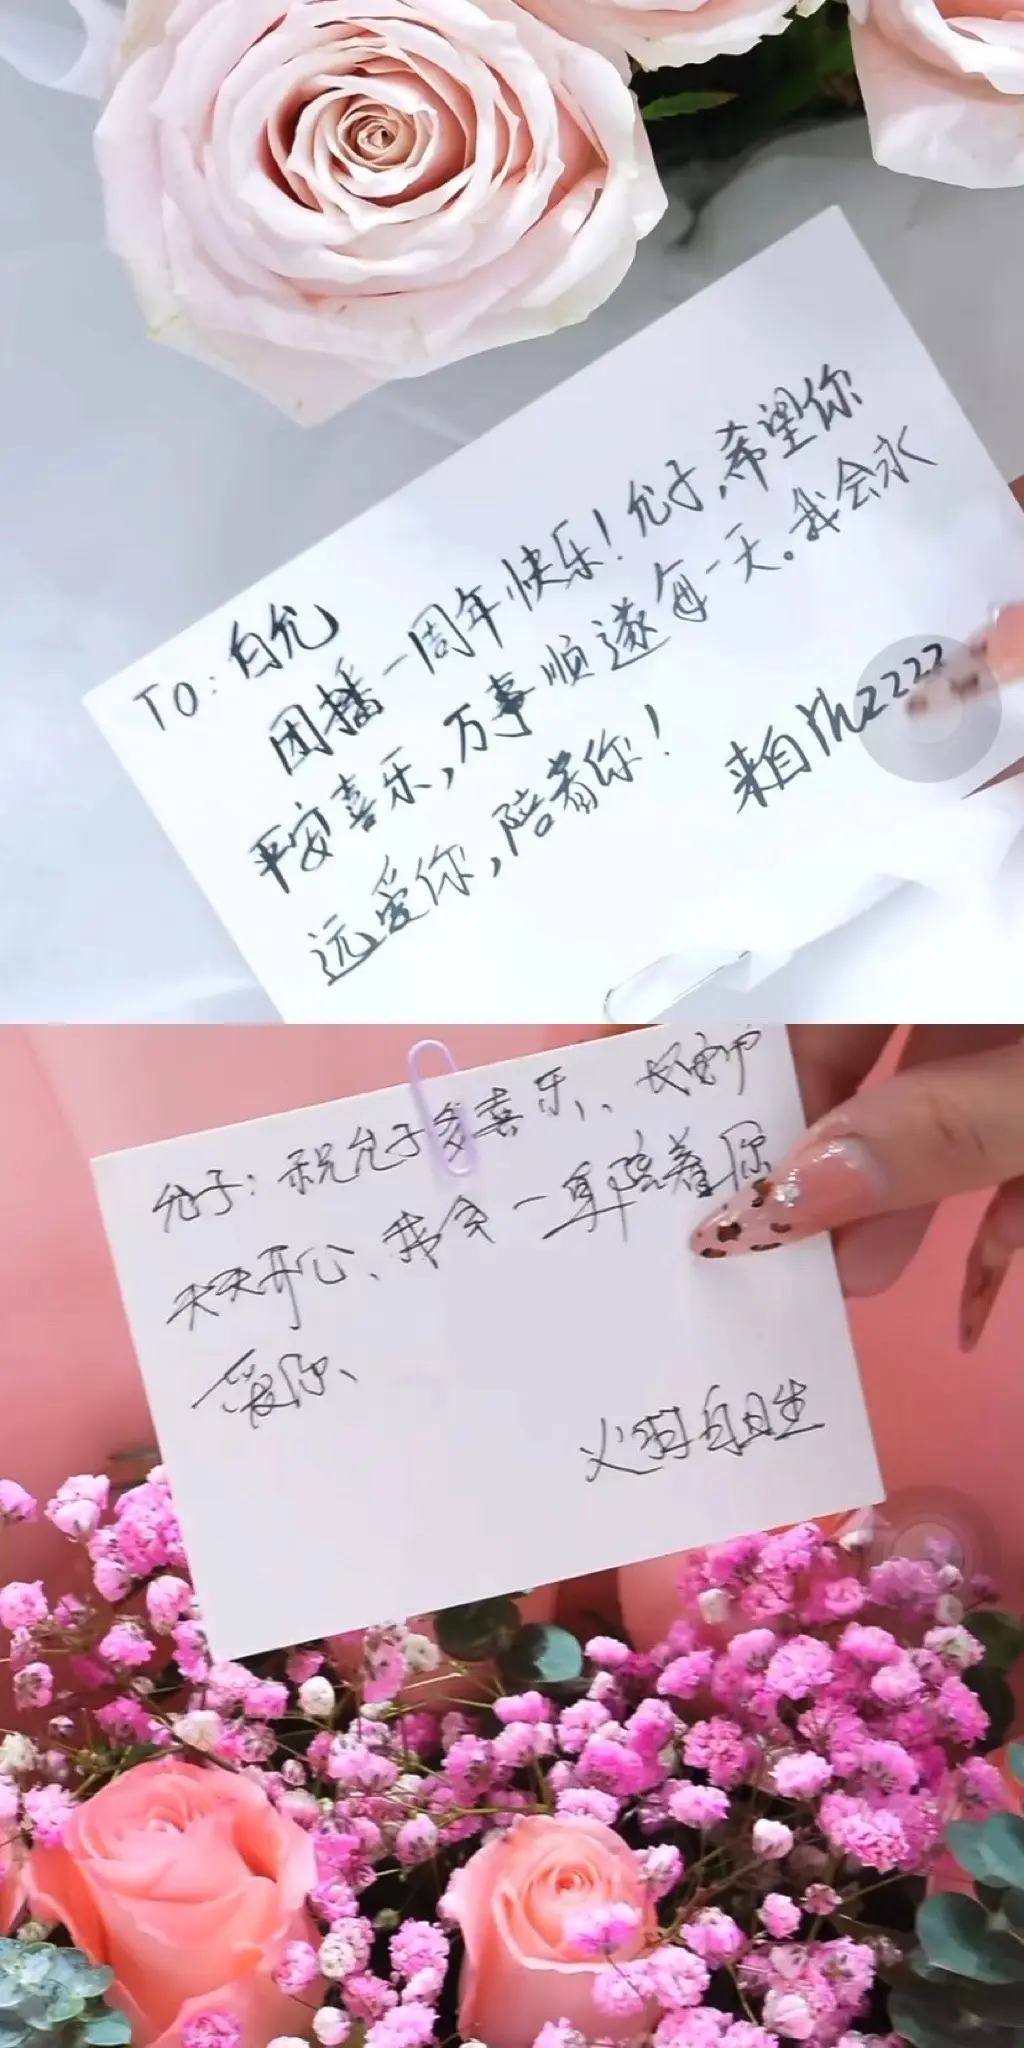 TO:白允
团播一周年快乐！允子,希望你
平安喜乐,万事顺遂每一天。我会永
远爱你,陪着你！
来自
允子：祝允子多喜乐、、长安宁
天天开心、我会一直陪着你
爱你、